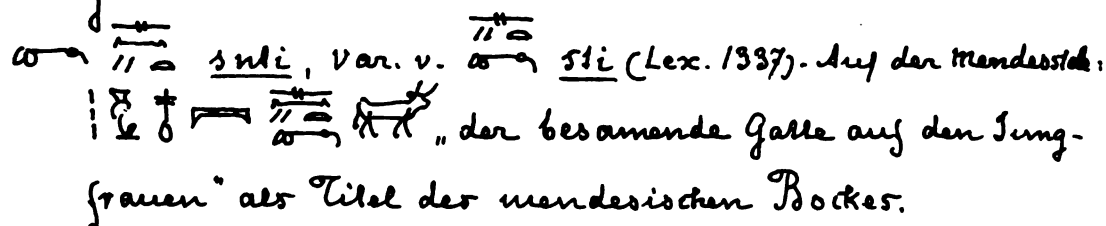 snti, var. v. sti (Lex. 1337). Auf der Mendesstele:
„der besamende Gatte auf den Jung-
frauen“ als Titel des mendesischen Bockes.